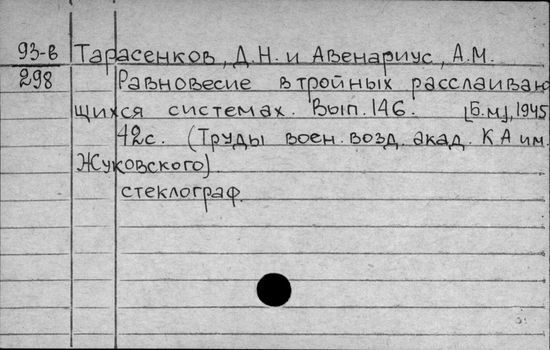 93-в Тарасенков, Д.Н. и Авенариус, А.М.
298 Равновесие в тройных расслаиваю
щихся системах. Вып. 146. [Б.м.], 1945
42с. (Труды воен. возд. акад. КА им.
Жуковского).
стеклограф.